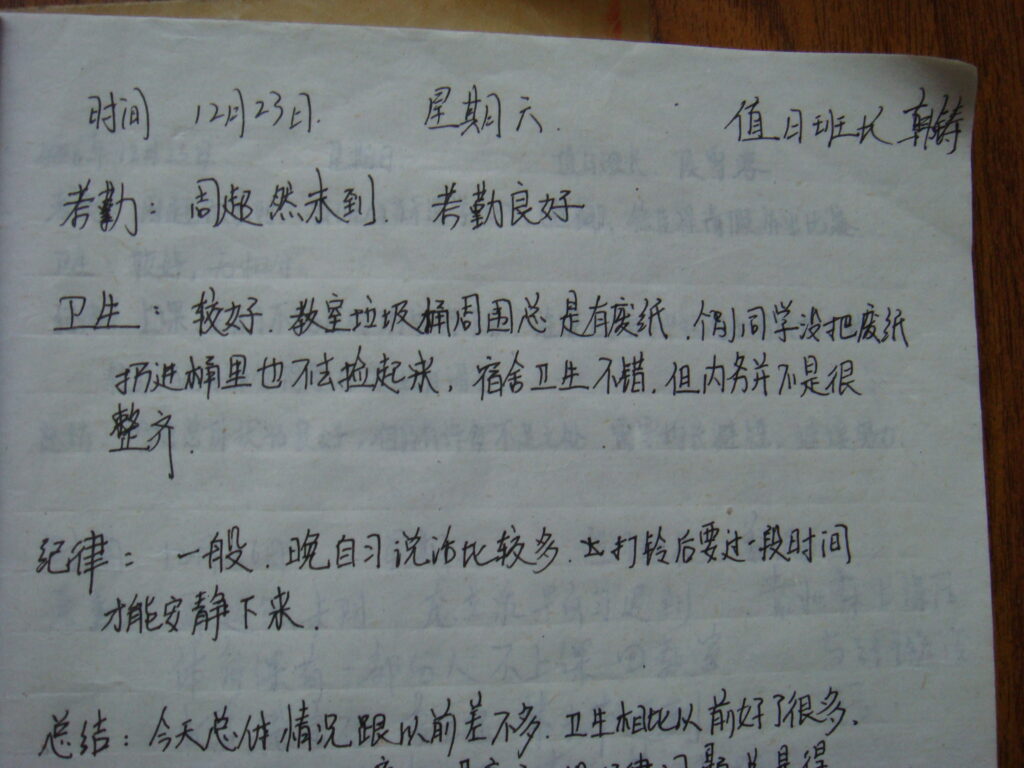 时间 12月23日. 星期六. 值日班长 韩铸
考勤: 周超然未到. 考勤良好
卫生: 较好. 教室垃圾桶周围总是有废纸. 倘同学没把废纸
扔进桶里也不去捡起来. 宿舍卫生不错. 但内务并不是很
整齐.
纪律: 一般. 晚自习说话比较多. 打铃后要过一段时间
才能安静下来.
总结: 今天总体情况跟以前差不多. 卫生相比以前好了很多.